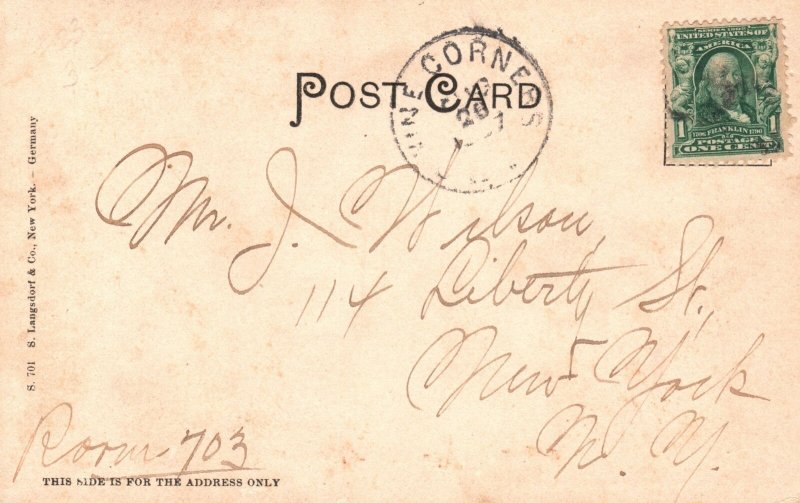 POST CARD
CORNERS
26
SERIES 1902
UNITED STATES OF
AMERICA
1
FRANKLIN
POSTAGE
ONE CENT
Mr. J. Wilson,
114 Liberty St.,
New York
N. Y.
Room 703
THIS SIDE IS FOR THE ADDRESS ONLY
S. 701 S. Langsdorf & Co., New York. - Germany